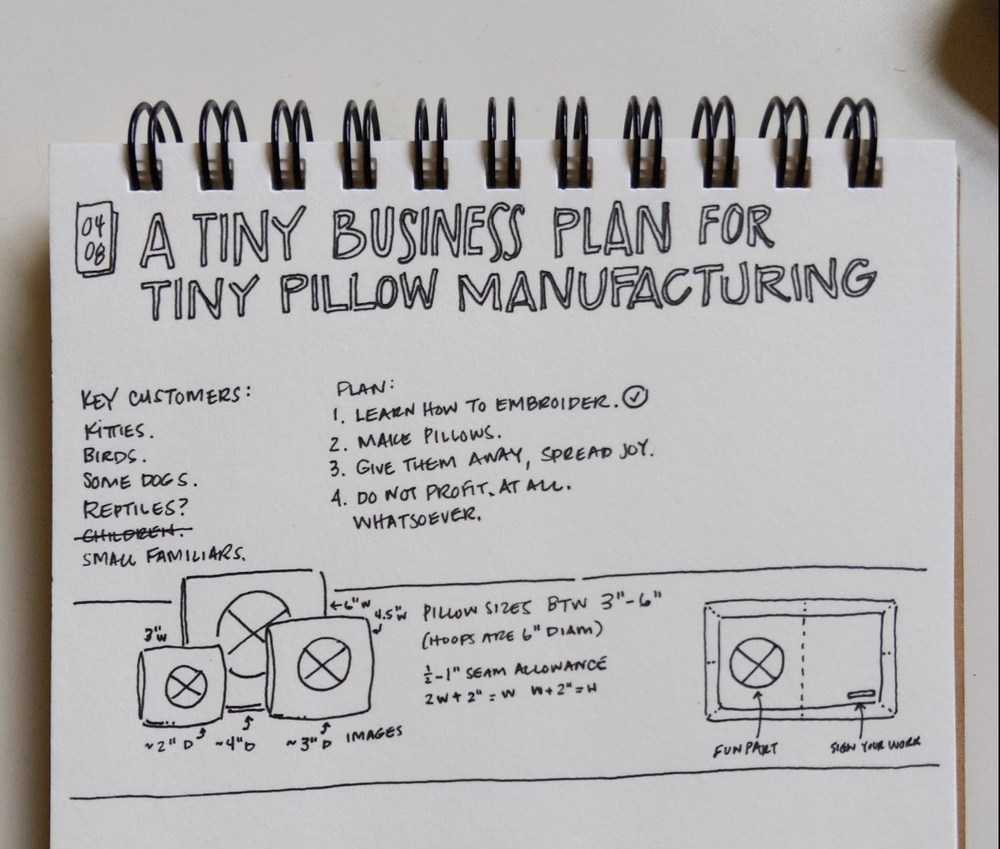 04
08
A TINY BUSINESS PLAN FOR
TINY PILLOW MANUFACTURING
KEY CUSTOMERS:
KITTIES.
BIRDS.
SOME DOGS.
REPTILES?
CHILDREN.
SMALL FAMILIARS.
PLAN:
1. LEARN HOW TO EMBROIDER.
2. MAKE PILLOWS.
3. GIVE THEM AWAY, SPREAD JOY.
4. DO NOT PROFIT. AT ALL.
WHATSOEVER.
3"W
←6"W
4.5"W
~2" D
~4"D
~3"D IMAGES
PILLOW SIZES BTW 3"-6"
(HOOPS ARE 6" DIAM)
½-1" SEAM ALLOWANCE
2W+2"=W W+2"=H
FUN PART
SIGN YOUR WORK